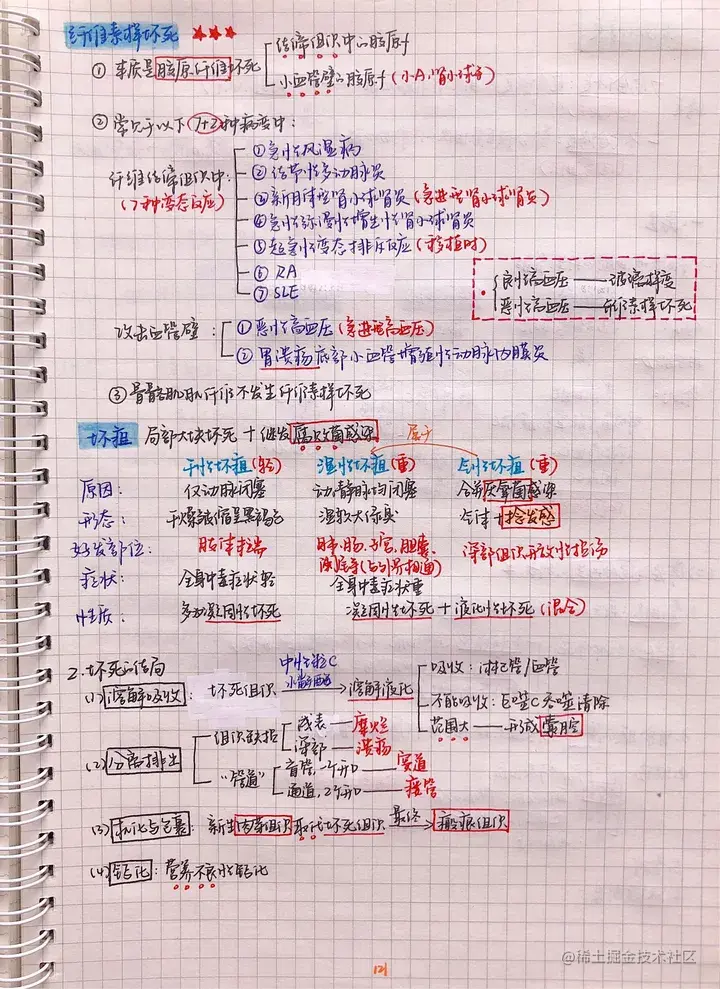 纤维素样坏死 ★★★
结缔组织中的胶原f
① 本质是胶原纤维坏死
小血管壁的胶原f (小A、肾小球f)
② 常见于以下7+2种病变中:
①急性风湿病
②结节性多动脉炎
纤维结缔组织中:
③新月体型肾小球肾炎(急进型肾小球肾炎)
(7种变态反应)
④急性弥漫性增生性肾小球肾炎
⑤超急性变态排斥反应(移植时)
⑥ RA
⑦ SLE
良性高血压——玻璃样变
恶性高血压——纤维素样坏死
攻击血管壁:
①恶性高血压(急进型高血压)
②胃溃疡底部小血管增殖性动脉内膜炎
③骨骼肌肌纤维不发生纤维素样坏死
坏疽 局部大块坏死+继发腐败菌感染 属于
干性坏疽(轻) 湿性坏疽(重) 气性坏疽(重)
原因: 仅动脉闭塞 动、静脉均闭塞 合并厌氧菌感染
形态: 干燥皱缩呈黑褐色 湿软大係臭 气体+捻发感
好发部位: 肢体末端 肺、肠、子宫、胆囊、 深部组织开放性损伤
阑尾等(与外界相通)
症状: 全身中毒症状轻 全身中毒症状重
性质: 多为凝固性坏死 凝固性坏死+液化性坏死(混合)
2. 坏死的结局
中性粒C
吸收:淋巴管/血管
(1)溶解吸收: 坏死组织 水解酶 → 溶解液化
不能吸收:巨噬C吞噬清除
范围大——形成囊腔
组织缺损
浅表—糜烂
深部—溃疡
(2)分离排出
"管道"
盲管,一个开口——窦道
通道,2个开口——瘘管
(3)机化与包裹: 新生肉芽组织取代坏死组织 最终→ 瘢痕组织
(4)钙化: 营养不良性钙化
121
@稀土掘金技术社区